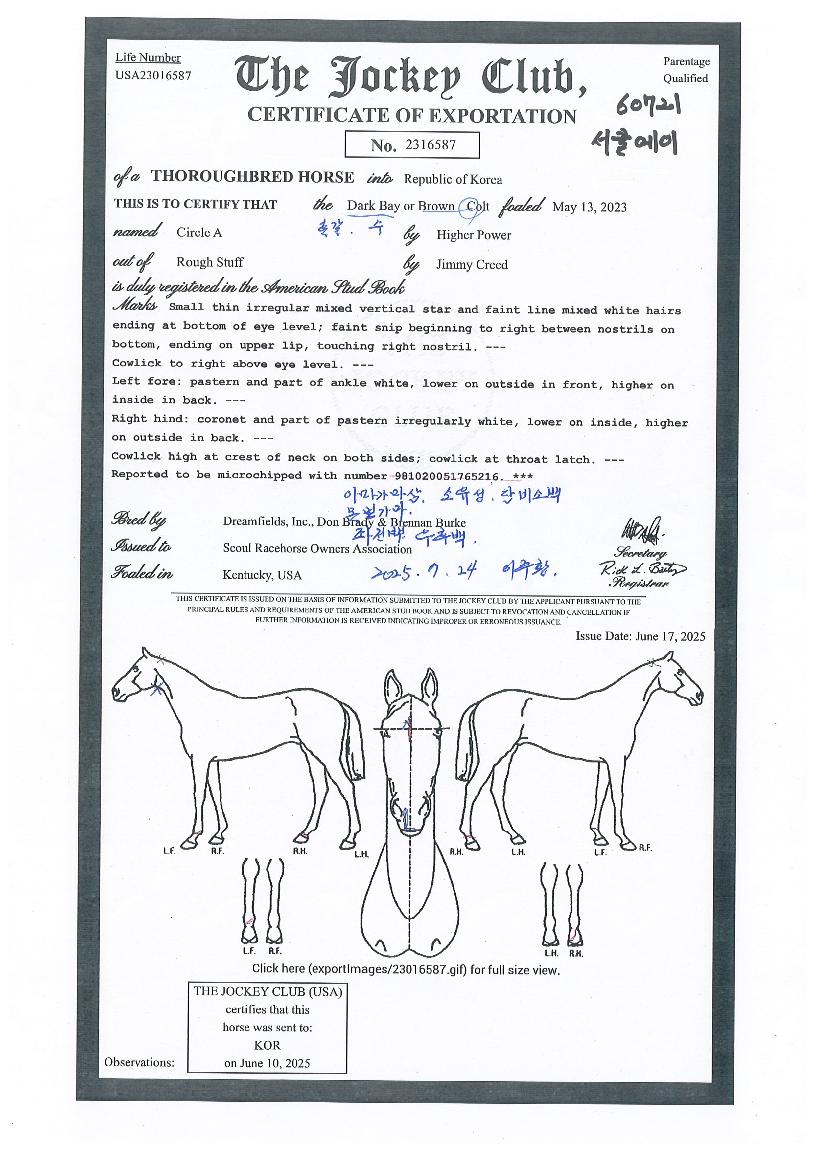 Life Number
USA23016587
The Jockey Club,
Parentage
Qualified
CERTIFICATE OF EXPORTATION
60721
서클에이
No. 2316587
of a THOROUGHBRED HORSE into Republic of Korea
THIS IS TO CERTIFY THAT the Dark Bay or Brown Colt foaled May 13, 2023
흑갈. 수
named Circle A by Higher Power
out of Rough Stuff by Jimmy Creed
is duly registered in the American Stud Book
Marks Small thin irregular mixed vertical star and faint line mixed white hairs
ending at bottom of eye level; faint snip beginning to right between nostrils on
bottom, ending on upper lip, touching right nostril. ---
Cowlick to right above eye level. ---
Left fore: pastern and part of ankle white, lower on outside in front, higher on
inside in back. ---
Right hind: coronet and part of pastern irregularly white, lower on inside, higher
on outside in back. ---
Cowlick high at crest of neck on both sides; cowlick at throat latch. ---
Reported to be microchipped with number 981020051765216. ***
소유성. 단비소백
Bred by Dreamfields, Inc., Don Brady & Brennan Burke
Issued to Seoul Racehorse Owners Association
Foaled in Kentucky, USA
2025. 7. 24
Secretary
Registrar
THIS CERTIFICATE IS ISSUED ON THE BASIS OF INFORMATION SUBMITTED TO THE JOCKEY CLUB BY THE APPLICANT PURSUANT TO THE
PRINCIPAL RULES AND REQUIREMENTS OF THE AMERICAN STUD BOOK AND IS SUBJECT TO REVOCATION AND CANCELLATION IF
FURTHER INFORMATION IS RECEIVED INDICATING IMPROPER OR ERRONEOUS ISSUANCE.
Issue Date: June 17, 2025
L.F. R.F. R.H. L.H. R.H. L.H. L.F. R.F.
L.F. R.F. L.H. R.H.
Click here (exportImages/23016587.gif) for full size view.
THE JOCKEY CLUB (USA)
certifies that this
horse was sent to:
KOR
on June 10, 2025
Observations: